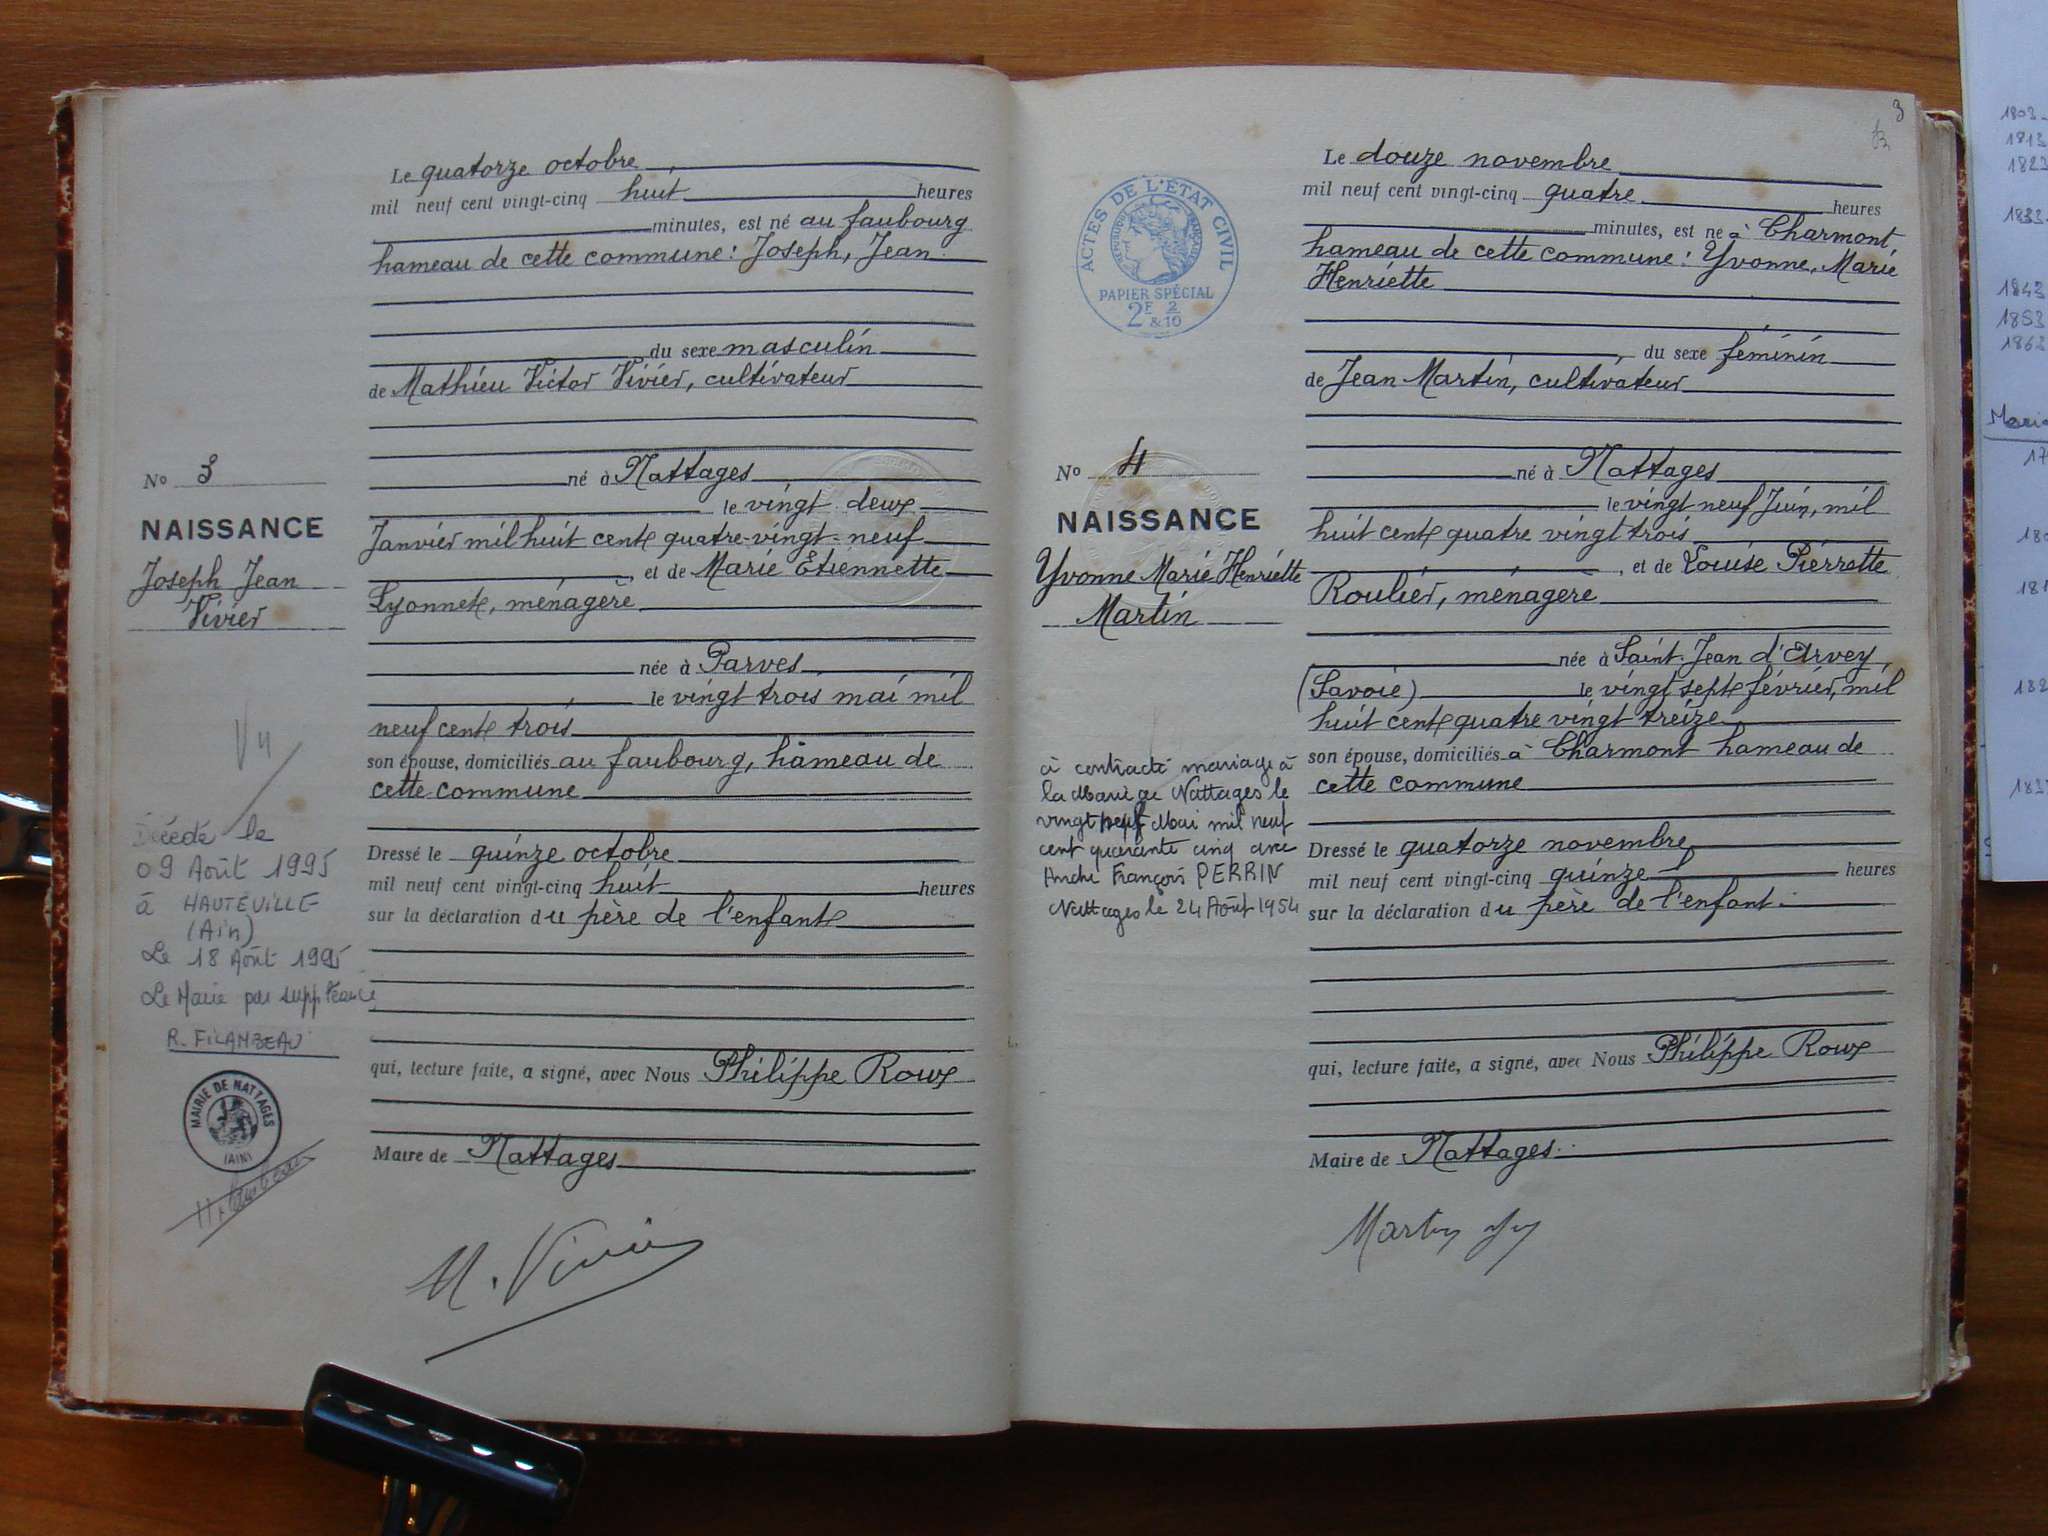 Le quatorze octobre
mil neuf cent vingt-cinq huit heures
minutes, est né au faubourg
hameau de cette commune : Joseph, Jean
du sexe masculin
de Mathieu Victor Vivier, cultivateur
né à Nattages
le vingt deux
Janvier mil huit cent quatre-vingt-neuf
et de Marie Etiennette
Lyonnet, ménagère
née à Parves
le vingt trois mai mil
neuf cent trois
son épouse, domiciliés au faubourg, hameau de
cette commune
Dressé le quinze octobre
mil neuf cent vingt-cinq huit heures
sur la déclaration du père de l'enfant
qui, lecture faite, a signé, avec Nous Philippe Roux
Maire de Nattages
M. Vivier
No 3
NAISSANCE
Joseph Jean
Vivier
Vu
Décédé le
09 Août 1995
à HAUTEVILLE
(Ain)
Le 18 Août 1995
Le Maire par suppléance
R. FILAMBEAU
MAIRIE DE NATTAGES
(AIN)
3
ACTES DE L'ETAT CIVIL
REPUBLIQUE FRANÇAISE
PAPIER SPÉCIAL
2F 2
& 10
No 4
NAISSANCE
Yvonne Marie Henriette
Martin
a contracté mariage à
la Mairie de Nattages le
vingt neuf Mai mil neuf
cent quarante cinq avec
André François PERRIN
Nattages le 24 Août 1954
Le douze novembre
mil neuf cent vingt-cinq quatre heures
minutes, est né à Charmont
hameau de cette commune : Yvonne, Marie
Henriette
du sexe féminin
de Jean Martin, cultivateur
né à Nattages
le vingt neuf Juin, mil
huit cent quatre vingt trois
, et de Louise Pierrette
Roulier, ménagère
née à Saint-Jean d'Arvey,
(Savoie) le vingt sept février, mil
huit cent quatre vingt treize
son épouse, domiciliés à Charmont hameau de
cette commune
Dressé le quatorze novembre
mil neuf cent vingt-cinq quinze heures
sur la déclaration du père de l'enfant
qui, lecture faite, a signé, avec Nous Philippe Roux
Maire de Nattages
Martin
1803
1813
1823
1833
1843
1853
1863